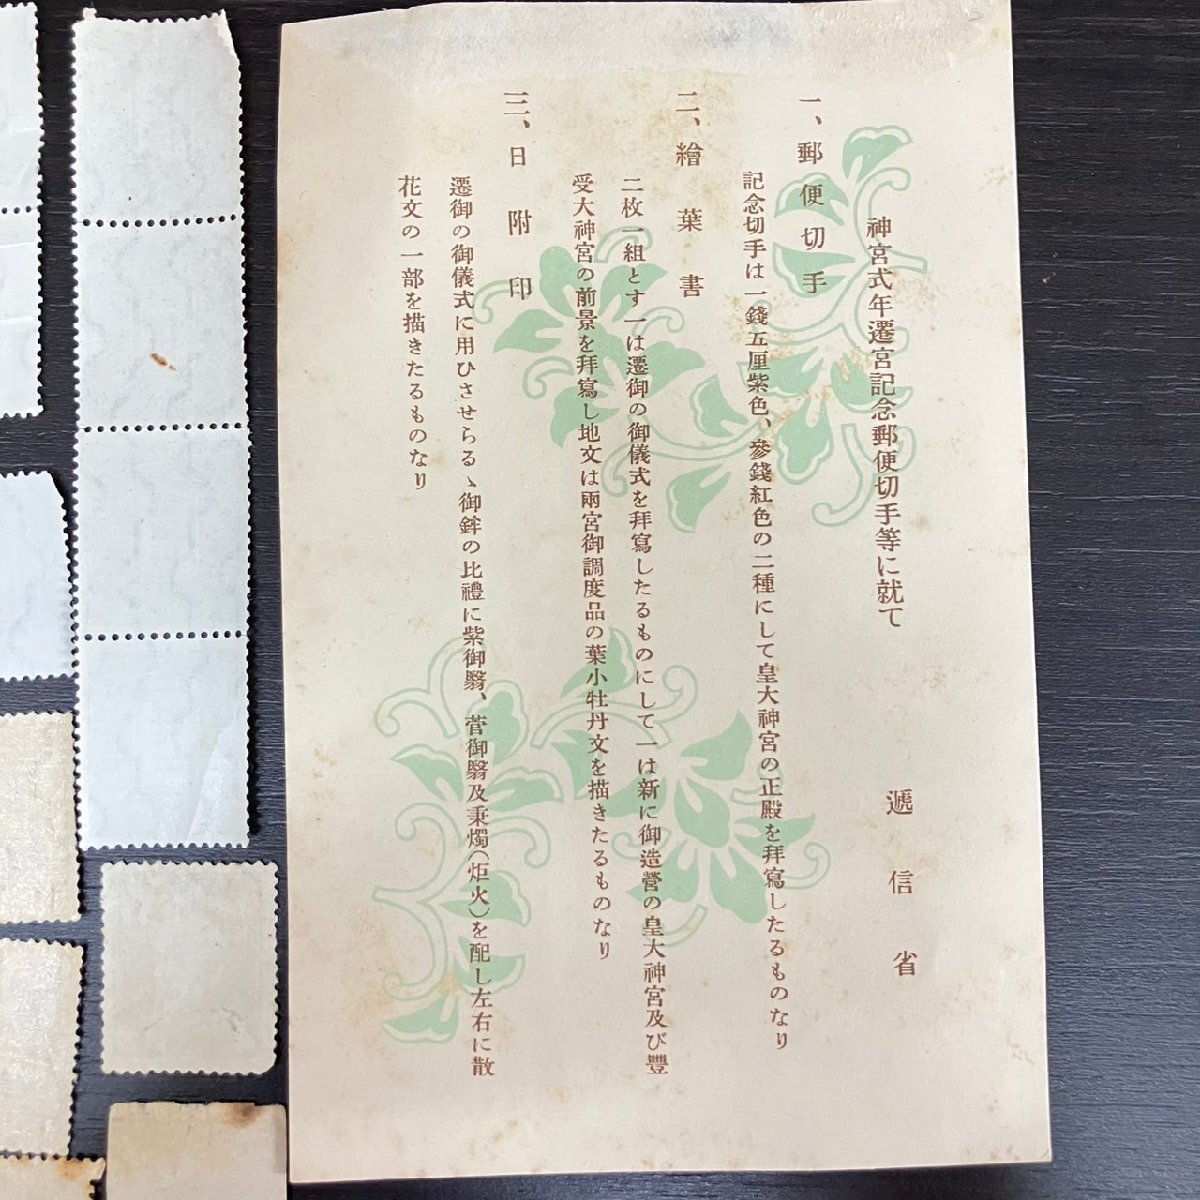 神宮式年遷宮記念郵便切手等に就て
遞信省
一、郵便切手
記念切手は一錢五厘紫色、參錢紅色の二種にして皇大神宮の正殿を拜寫したるものなり
二、繪葉書
二枚一組とす一は遷御の御儀式を拜寫したるものにして一は新に御造營の皇大神宮及び豐
受大神宮の前景を拜寫し地文は兩宮御調度品の葉小牡丹文を描きたるものなり
三、日附印
遷御の御儀式に用ひさせらるゝ御鉾の比禮に紫御翳、菅御翳及秉燭(炬火)を配し左右に散
花文の一部を描きたるものなり